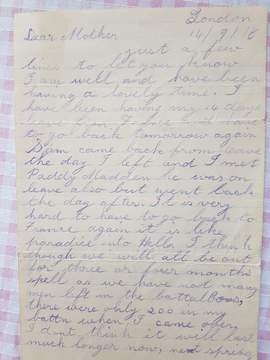 London
Dear Mother 14/9/18
just a few
lines to let you know
I am well and have been
having a lovely time. I
have been having my 14 days
to go back tomorrow again
came back from leave
the day I left and I met
Paddy Madden he was on
leave also but went back
the day after. It is very
hard to have to go back to
France again it is like
paradise into Hell. I think
though we will all be out
for three or four months
spell as we have not many
men left in the battalions,
there were only 200 in my
battn when I came over.
I dont think it will last
much longer now, next spring